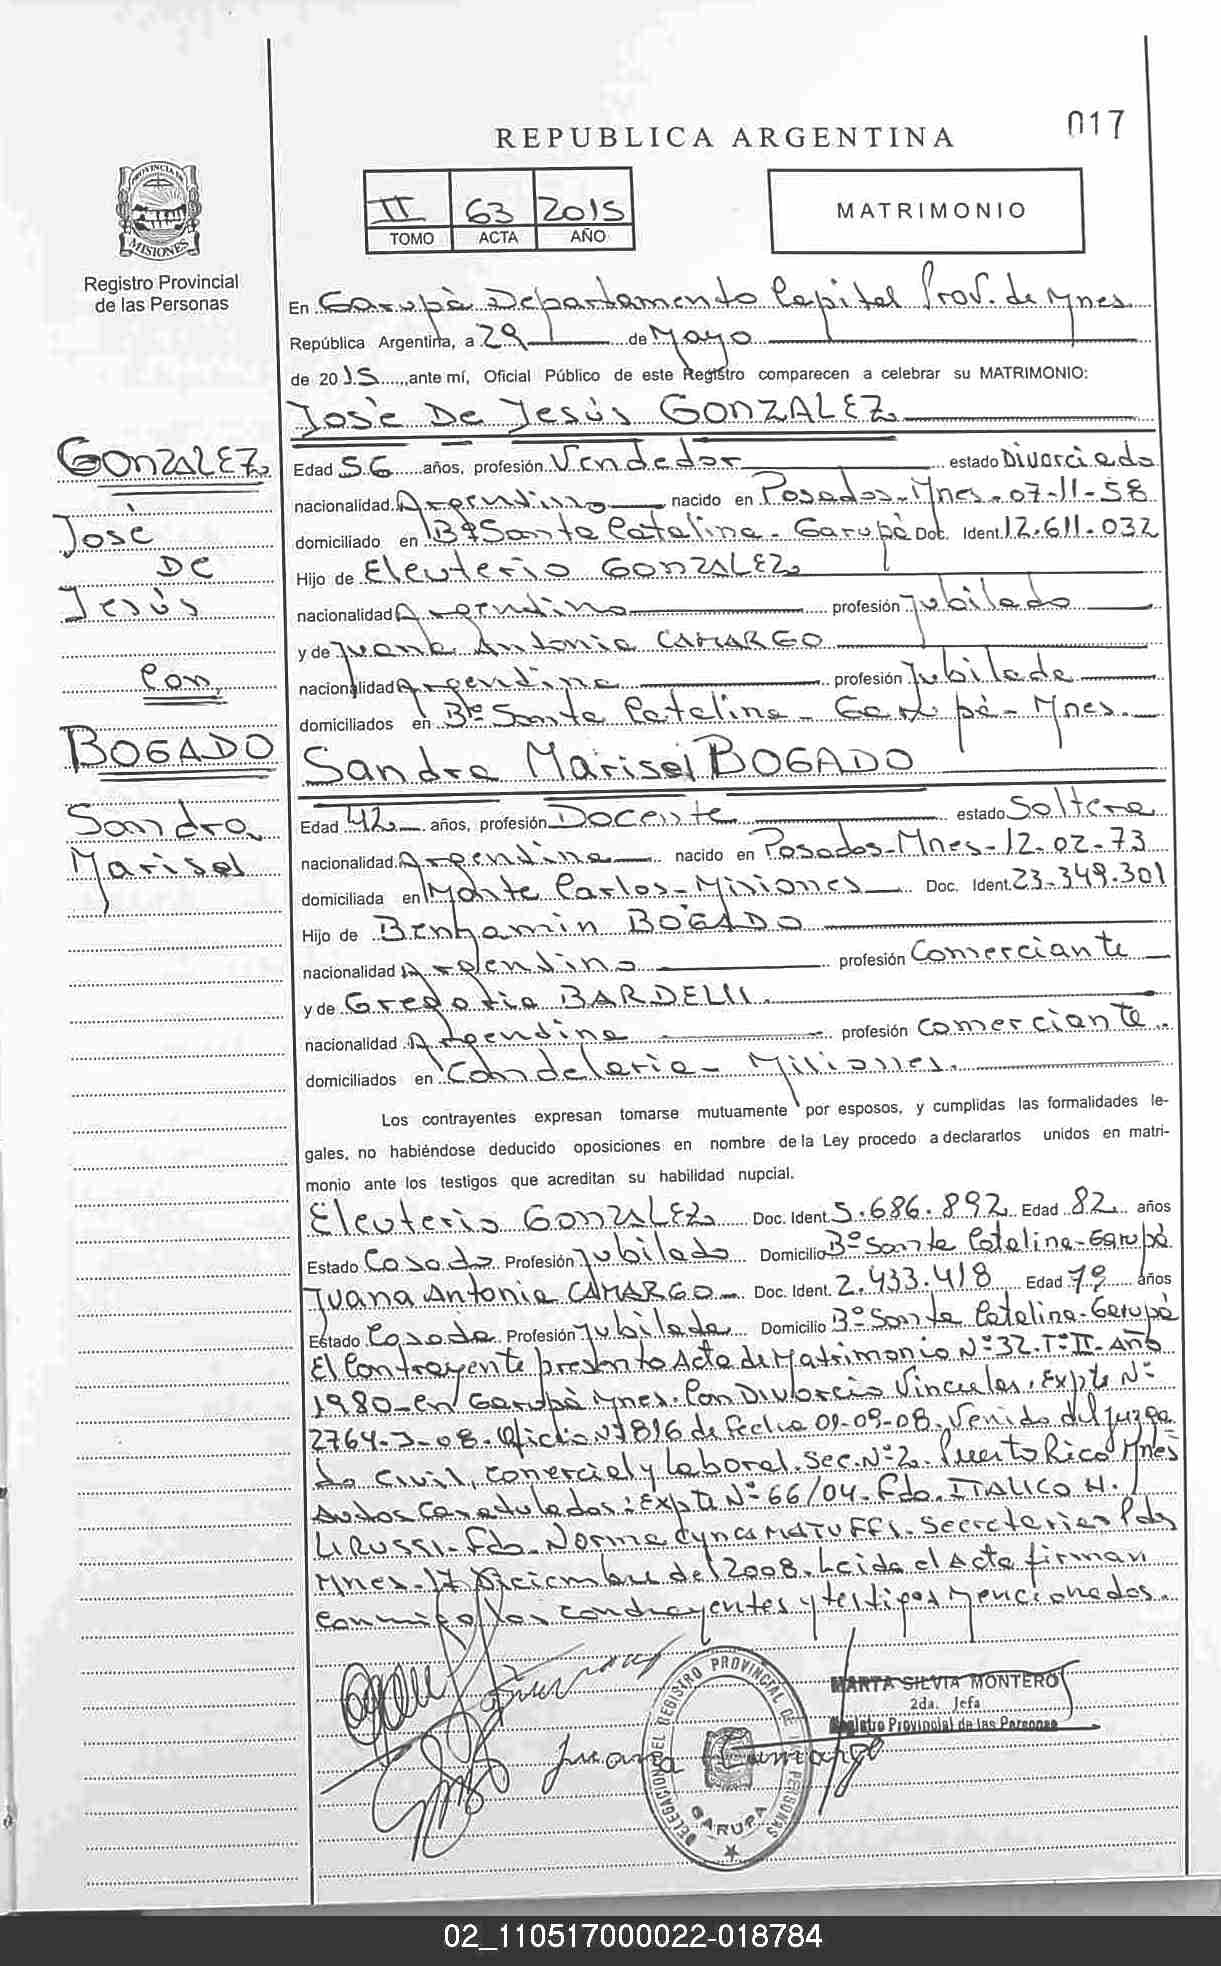 017
REPUBLICA ARGENTINA
PROVINCIA DE
MISIONES
Registro Provincial
de las Personas
II 63 2015
TOMO ACTA AÑO
MATRIMONIO
En Garupà Departamento Capital Prov. de Mnes
República Argentina, a 29 de Mayo
de 2015, ante mí, Oficial Público de este Registro comparecen a celebrar su MATRIMONIO:
José De Jesús GONZALEZ
GONZALEZ
José
De
Jesús
Con
BOGADO
Sandra
Marisel
Edad 56 años, profesión Vendedor estado Divorciado
nacionalidad Argentino nacido en Posadas-Mnes-07-11-58
domiciliado en Bº Santa Catalina-Garupà Doc. Ident. 12.611.032
Hijo de Eleuterio GONZALEZ
nacionalidad Argentino profesión Jubilado
y de Juana Antonia CAMARGO
nacionalidad Argentina profesión Jubilada
domiciliados en Bº Santa Catalina-Garupà-Mnes.
Sandra Marisel BOGADO
Edad 42 años, profesión Docente estado Soltera
nacionalidad Argentina nacido en Posadas-Mnes-12.02.73
domiciliada en Monte Carlos-Misiones Doc. Ident. 23.349.301
Hijo de Benhamin BOGADO
nacionalidad Argentino profesión Comerciante
y de Gregoria BARDELII.
nacionalidad Argentina profesión Comerciante.
domiciliados en Candelaria-Misiones.
Los contrayentes expresan tomarse mutuamente por esposos, y cumplidas las formalidades le-
gales, no habiéndose deducido oposiciones en nombre de la Ley procedo a declararlos unidos en matri-
monio ante los testigos que acreditan su habilidad nupcial.
Eleuterio GONZALEZ Doc. Ident. 5.686.892 Edad 82 años
Estado Casado Profesión Jubilado Domicilio Bº Santa Catalina-Garupà
Juana Antonia CAMARGO Doc. Ident. 2.433.418 Edad 79 años
Estado Casada Profesión Jubilada Domicilio Bº Santa Catalina-Garupà
El Contrayente presento Acta de Matrimonio Nº 32-Tº II-Año
1980-en Garupà Mnes. Con Divorcio Vincular. Expte Nº
2764-J-08. Oficio Nº 816 de fecha 09-09-08. Venido del Juzga
do Civil, comercial y Laboral. Sec. Nº 2. Puerto Rico Mnes
Autos Caratulados: Expte Nº 66/04. Fdo. ITALICO H.
Fdo. Norma Secretaria Pdas
Mnes. 17 Diciembre del 2008. Leida el Acta firman
conmigo los contrayentes y testigos mencionados.
DELEGACION DEL REGISTRO PROVINCIAL DE LAS PERSONAS
GARUPA
MARTA SILVIA MONTERO
2da. Jefa
Registro Provincial de las Personas
Juana Camargo
02_110517000022-018784